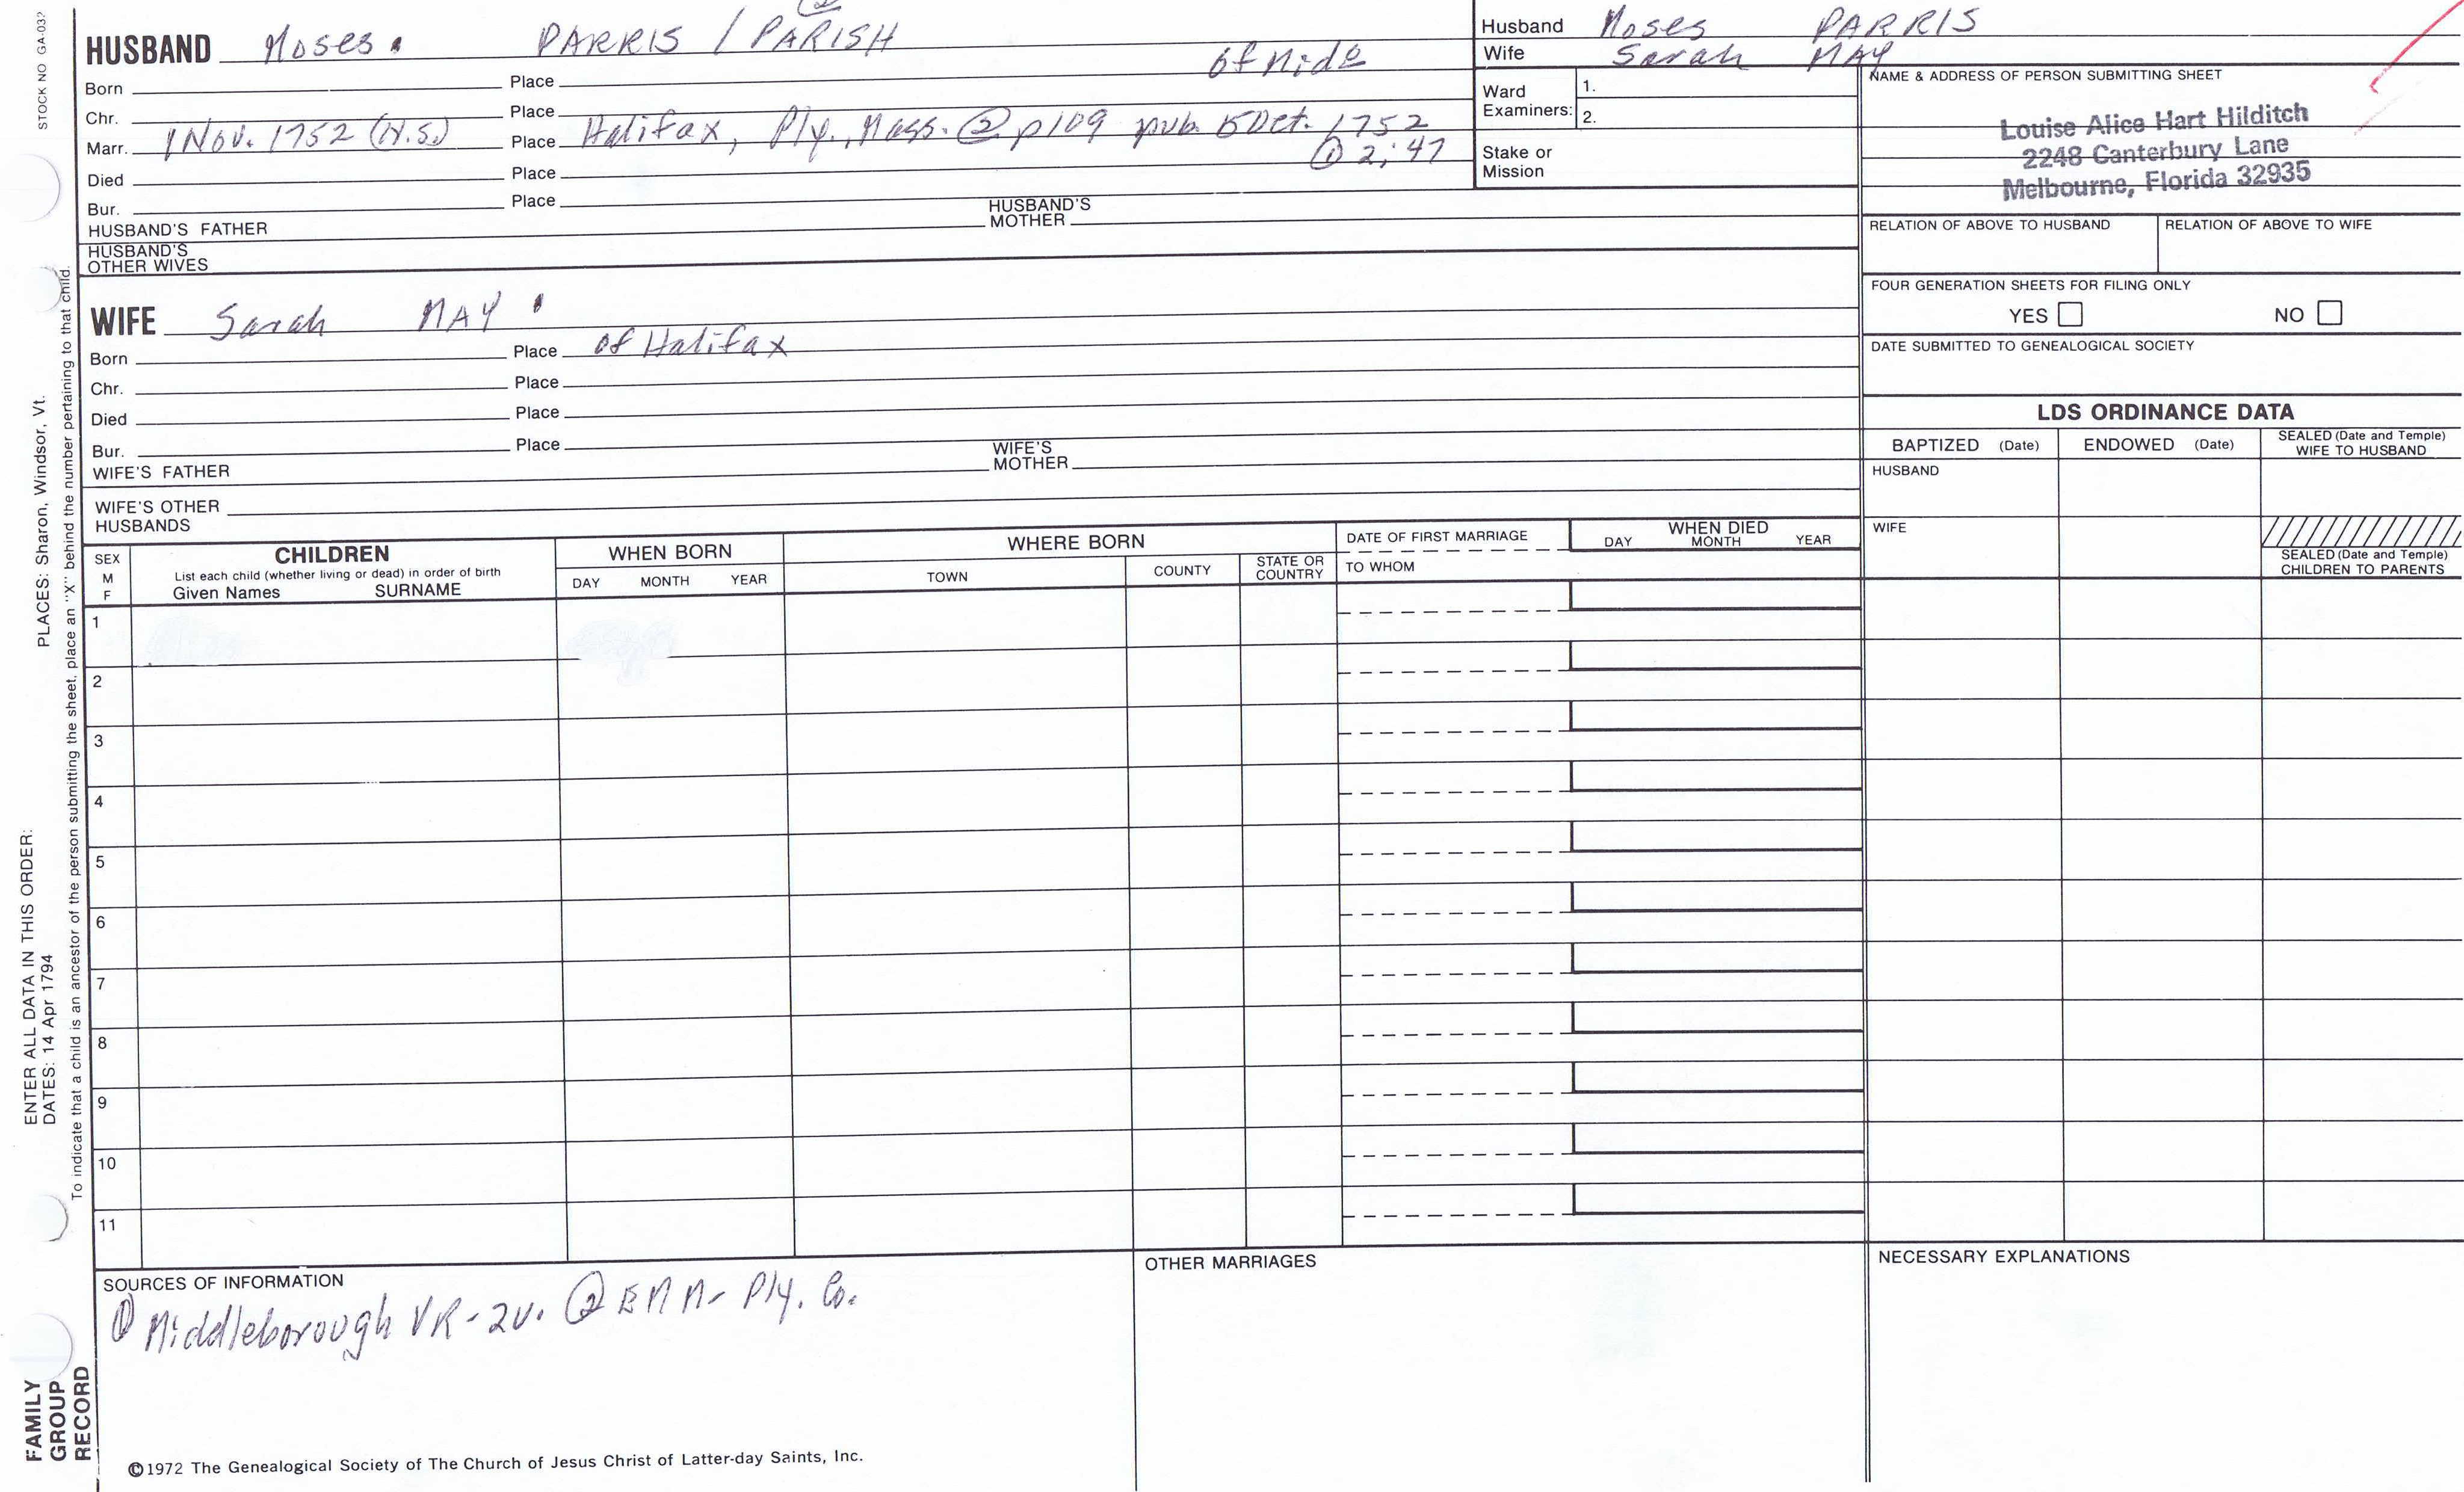 STOCK NO GA-03?
②
HUSBAND Moses. PARRIS / PARISH
of Midb
Born Place
Chr. Place
Marr. 1 Nov. 1752 (N.S.) Place Halifax, Ply., Mass. ② p109 pub. 5 Oct. 1752
① 2:47
Died Place
Bur. Place
HUSBAND'S FATHER HUSBAND'S MOTHER
HUSBAND'S OTHER WIVES
Husband Moses PARRIS
Wife Sarah MAY
Ward Examiners: 1.
2.
Stake or Mission
NAME & ADDRESS OF PERSON SUBMITTING SHEET
Louise Alice Hart Hilditch
2248 Canterbury Lane
Melbourne, Florida 32935
RELATION OF ABOVE TO HUSBAND RELATION OF ABOVE TO WIFE
FOUR GENERATION SHEETS FOR FILING ONLY
YES NO
DATE SUBMITTED TO GENEALOGICAL SOCIETY
WIFE Sarah MAY
Born Place of Halifax
Chr. Place
Died Place
Bur. Place
WIFE'S FATHER WIFE'S MOTHER
WIFE'S OTHER HUSBANDS
LDS ORDINANCE DATA
BAPTIZED (Date) ENDOWED (Date) SEALED (Date and Temple) WIFE TO HUSBAND
HUSBAND
WIFE
SEALED (Date and Temple) CHILDREN TO PARENTS
SEX M F
CHILDREN
List each child (whether living or dead) in order of birth
Given Names SURNAME
WHEN BORN
DAY MONTH YEAR
WHERE BORN
TOWN COUNTY STATE OR COUNTRY
DATE OF FIRST MARRIAGE
TO WHOM
WHEN DIED
DAY MONTH YEAR
1
2
3
4
5
6
7
8
9
10
11
SOURCES OF INFORMATION
① Middleborough VR-2v. ② EMM- Ply. Co.
OTHER MARRIAGES
NECESSARY EXPLANATIONS
©1972 The Genealogical Society of The Church of Jesus Christ of Latter-day Saints, Inc.
ENTER ALL DATA IN THIS ORDER:
DATES: 14 Apr 1794 PLACES: Sharon, Windsor, Vt.
To indicate that a child is an ancestor of the person submitting the sheet, place an "X" behind the number pertaining to that child.
FAMILY
GROUP
RECORD